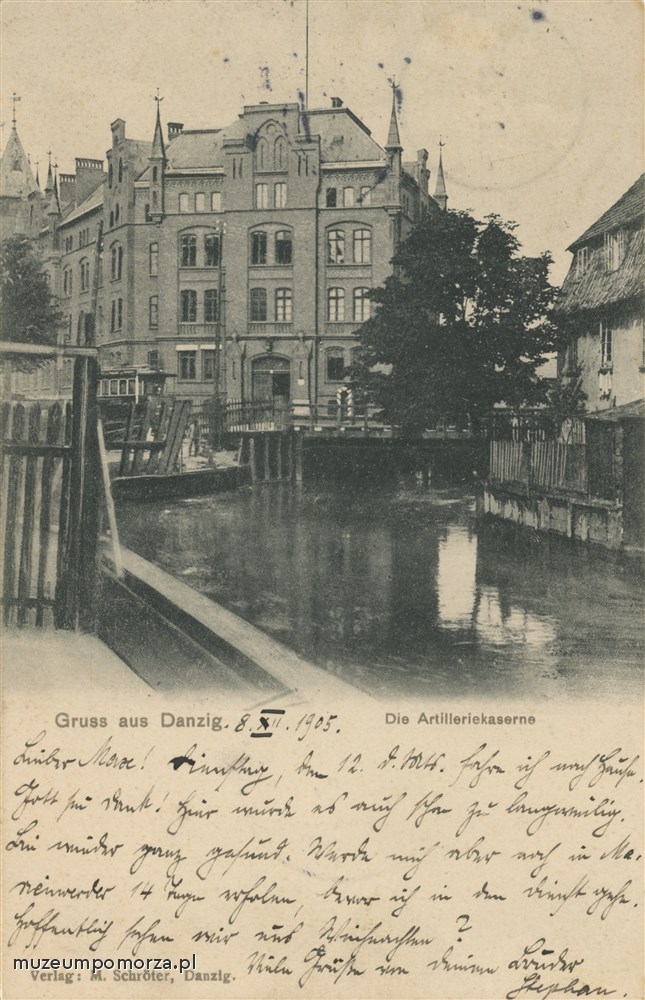 Gruss aus Danzig. 8. XII. 1905. Die Artilleriekaserne
Lieber Max! Dienstag, den 12. d. Mts. fahre ich nach Hause.
Gott sei Dank! Hier wurde es auch schon zu langweilig.
Bin wieder ganz gesund. Werde mich aber noch in Ma-
rienwerder 14 Tage erholen, bevor ich in den Dienst gehe.
Hoffentlich sehen wir uns Weihnachten?
Viele Grüße von deinem Bruder
Stephan.
Verlag: M. Schröter, Danzig.
muzeumpomorza.pl